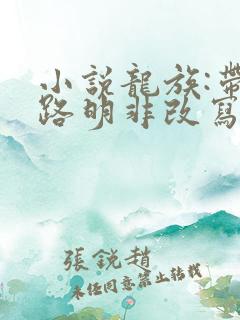 小說龍族:帶
路明非改寫
張銳趙
未经同意禁止转载